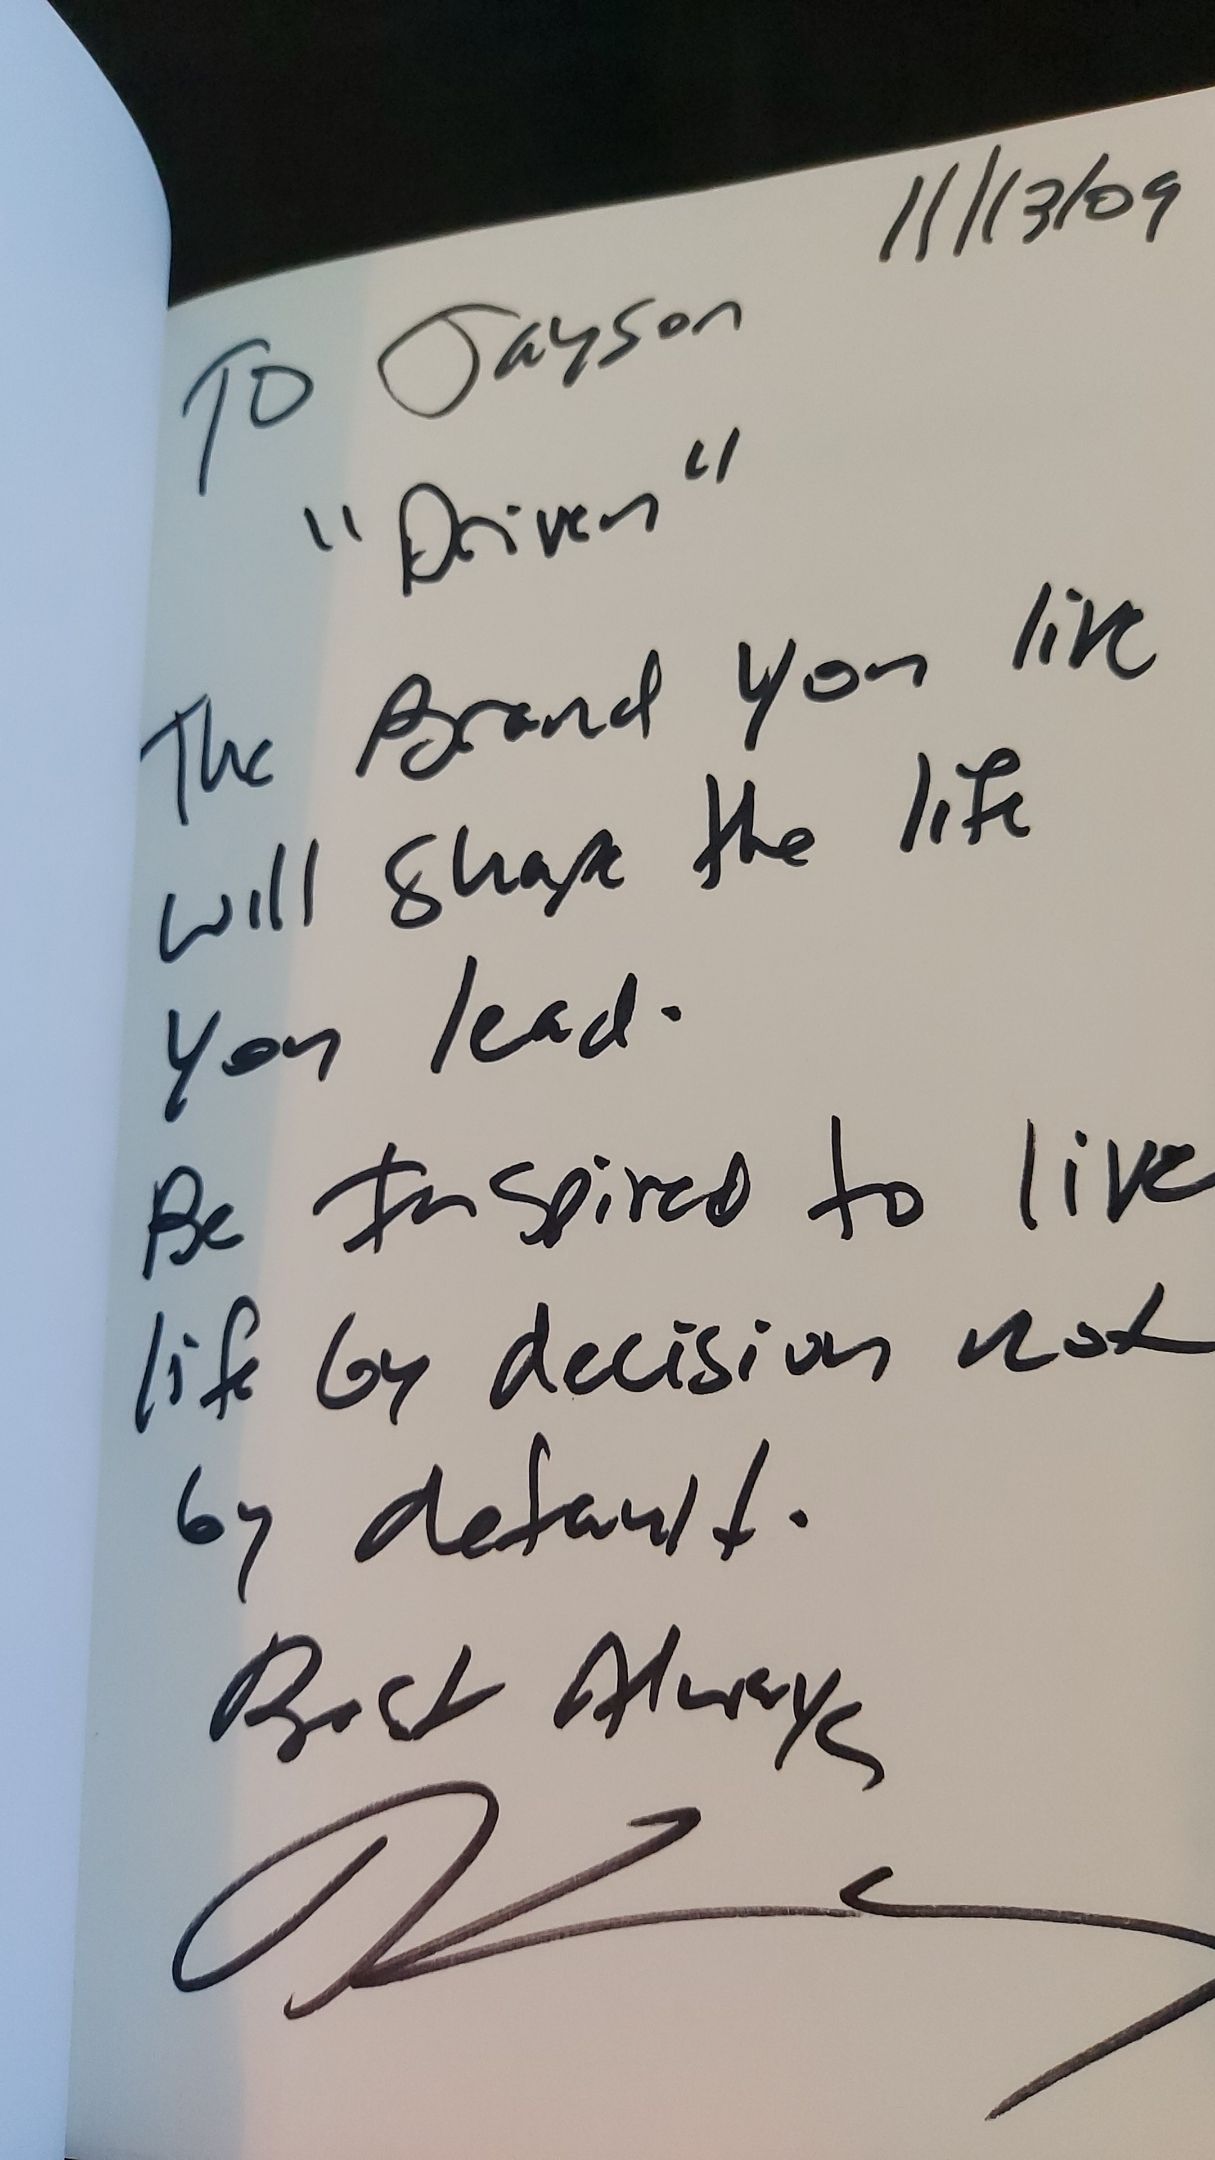 11/13/09
To Jayson
"Driven"
The Brand you live
will shape the life
you lead.
Be Inspired to live
life by decision not
by default.
Best Always